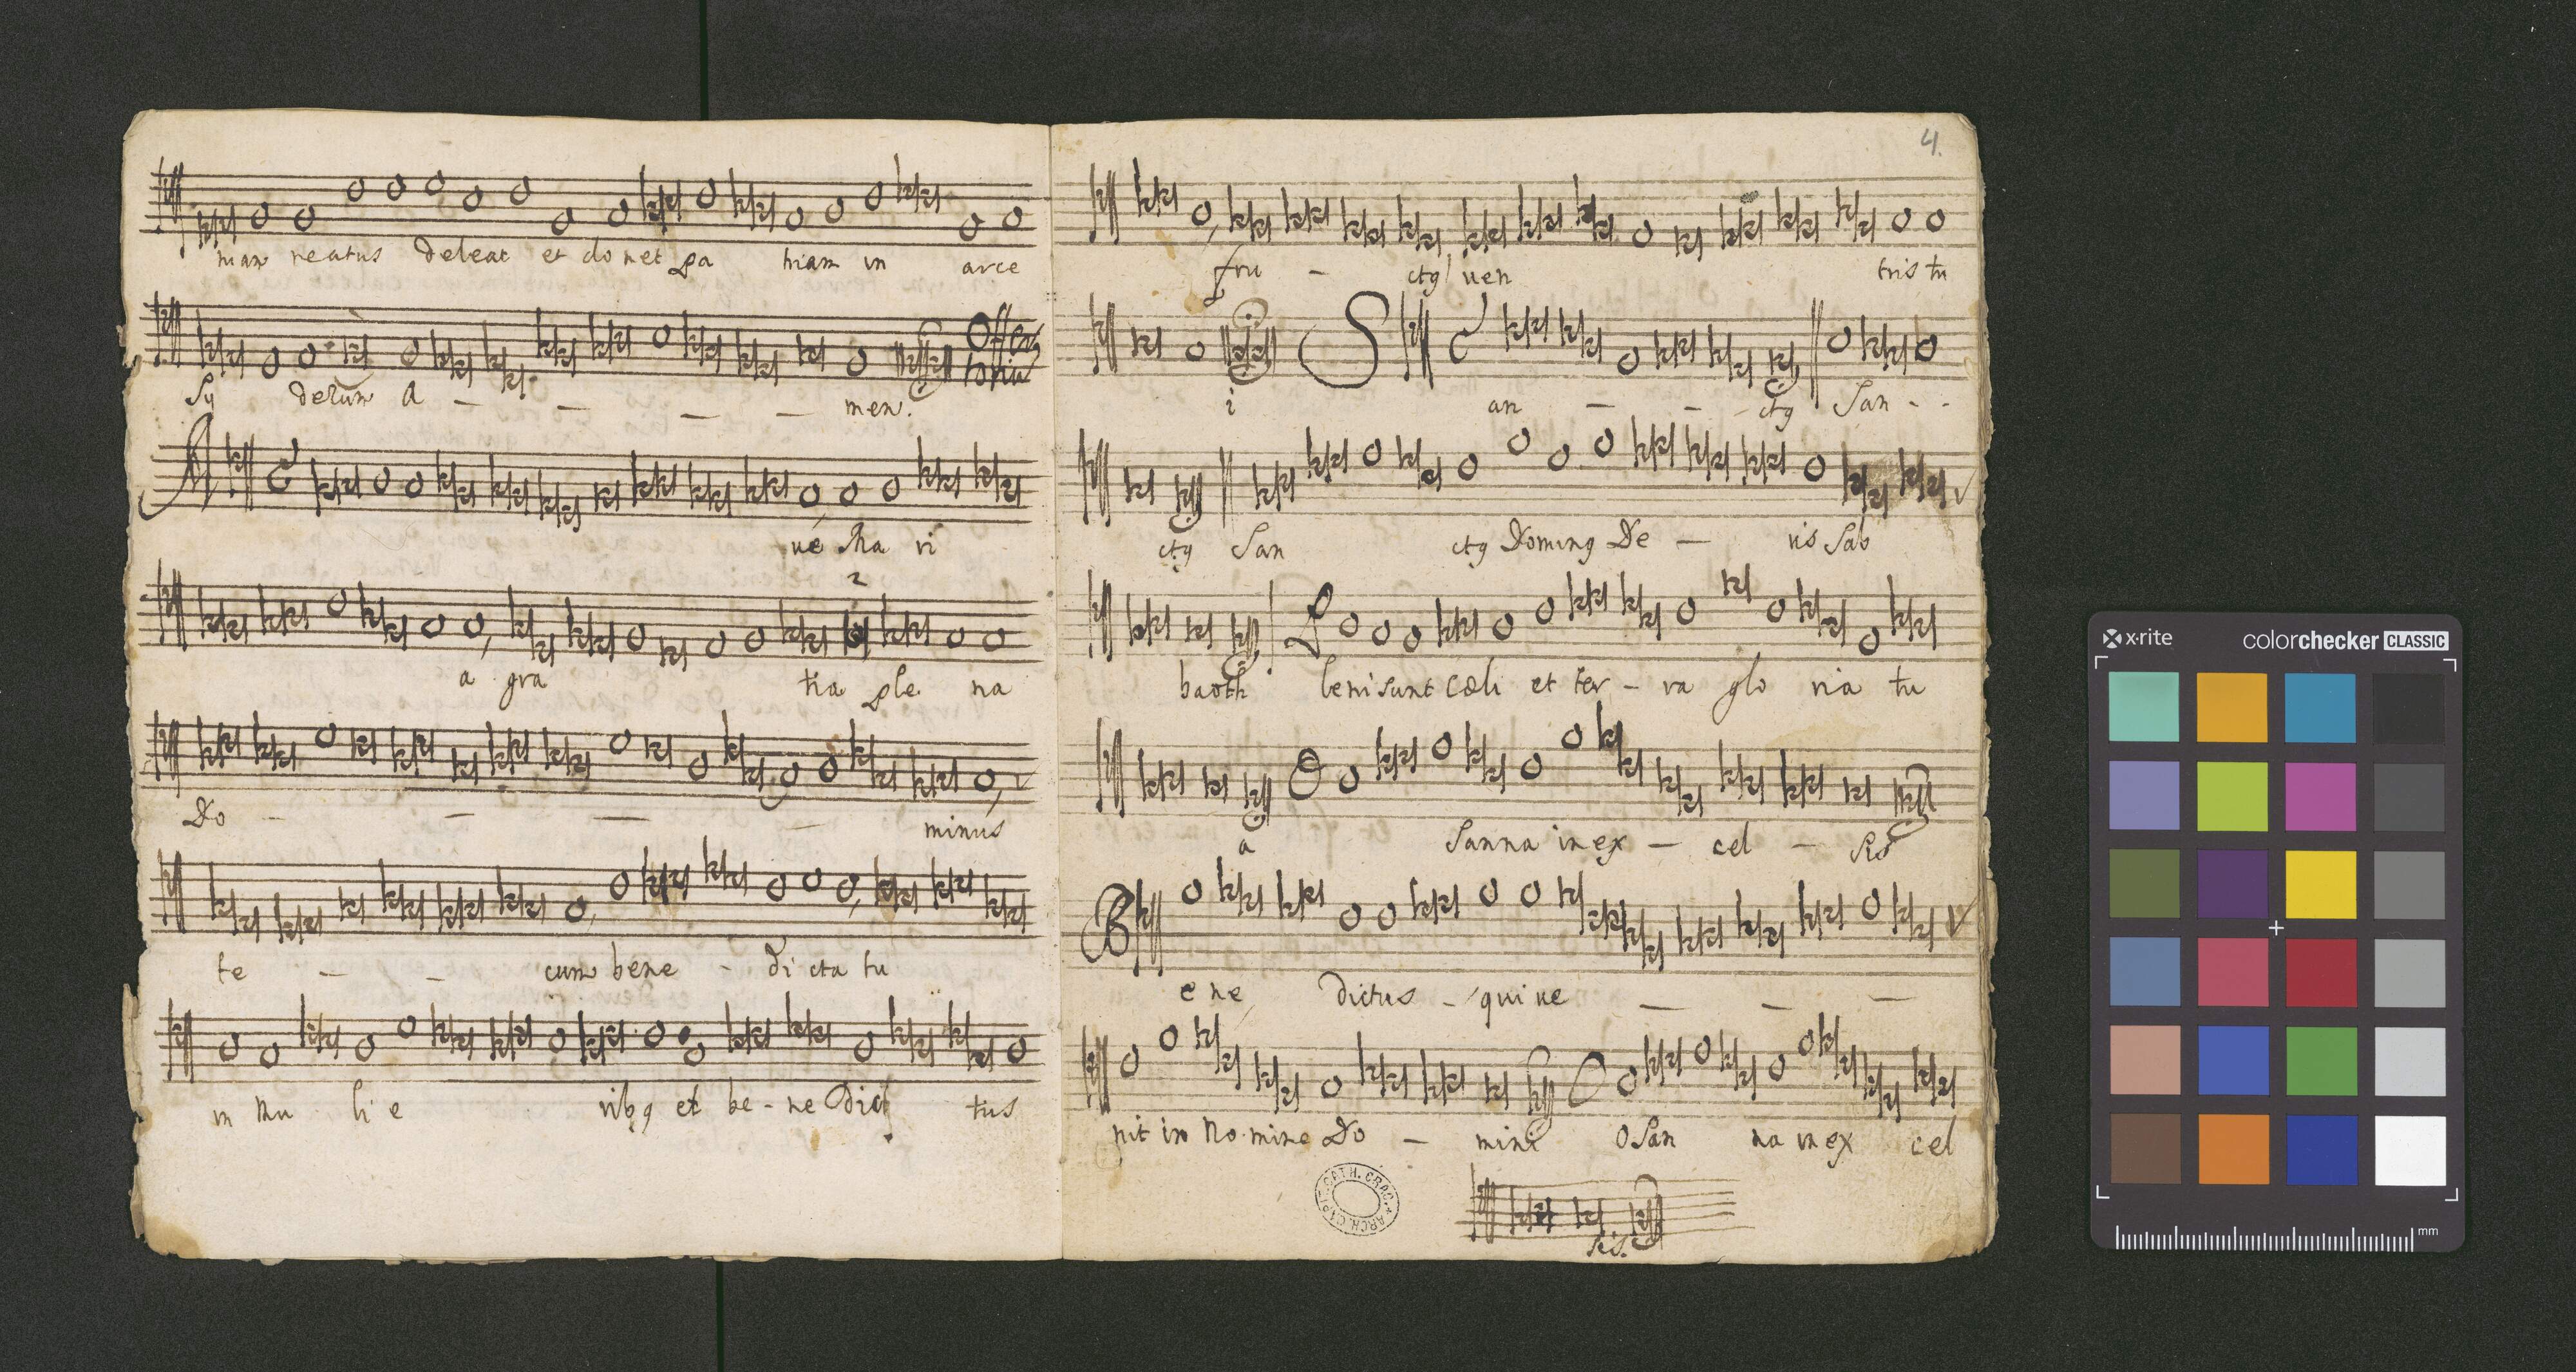 nam reatus deleat et donet pa triam in arce
Sy derum A - - - - men.
Offer
toriu
A
ve Ma ri
2
a gra tia ple na
Do - - - - minus
te - - cum bene - di cta tu
in Mu li e ribq et be - ne Dict tus
4.
fru - ctq ven tris tu
i S an - - ctq San - -
ctq San ctq Dominq De - us Sab
baoth P leni sunt cœli et ter - ra glo ria tu
a O Sanna in ex - cel - sis
B e ne dictus - qui ve - - -
nit in No mine Do - mini O San na in ex cel
sis.
ARCH. CAPIT. CATH. CRAC.
x·rite
colorchecker CLASSIC
mm